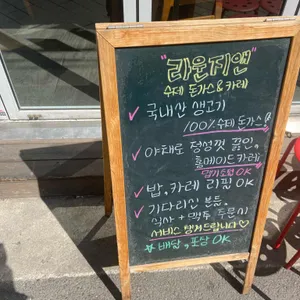 "라운지앤"
수제 돈가스 & 카레
✓ 국내산 생고기
100% 수제 돈가스
✓ 야채로 정성껏 끓인,
홈메이드카레
맵기조절 OK
✓ 밥, 카레 리필 OK
✓ 기다리신 분들,
식사 + 맥주 주문시
서비스 챙겨드립니다♡
☆ 배달, 포장 OK